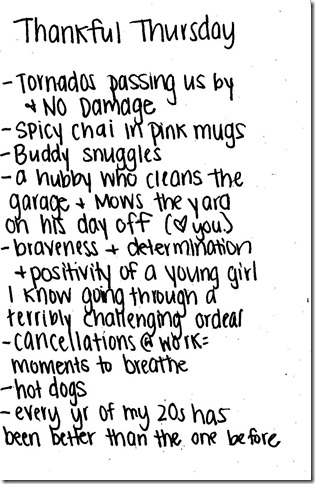 Thankful Thursday
- Tornados passing us by
+ NO Damage
- Spicy chai in pink mugs
- Buddy snuggles
- a hubby who cleans the
garage + mows the yard
on his day off (♡ you.)
- braveness + determination
+ positivity of a young girl
I know going through a
terribly challenging ordeal
- cancellations @ work =
moments to breathe
- hot dogs
- every yr of my 20s has
been better than the one before